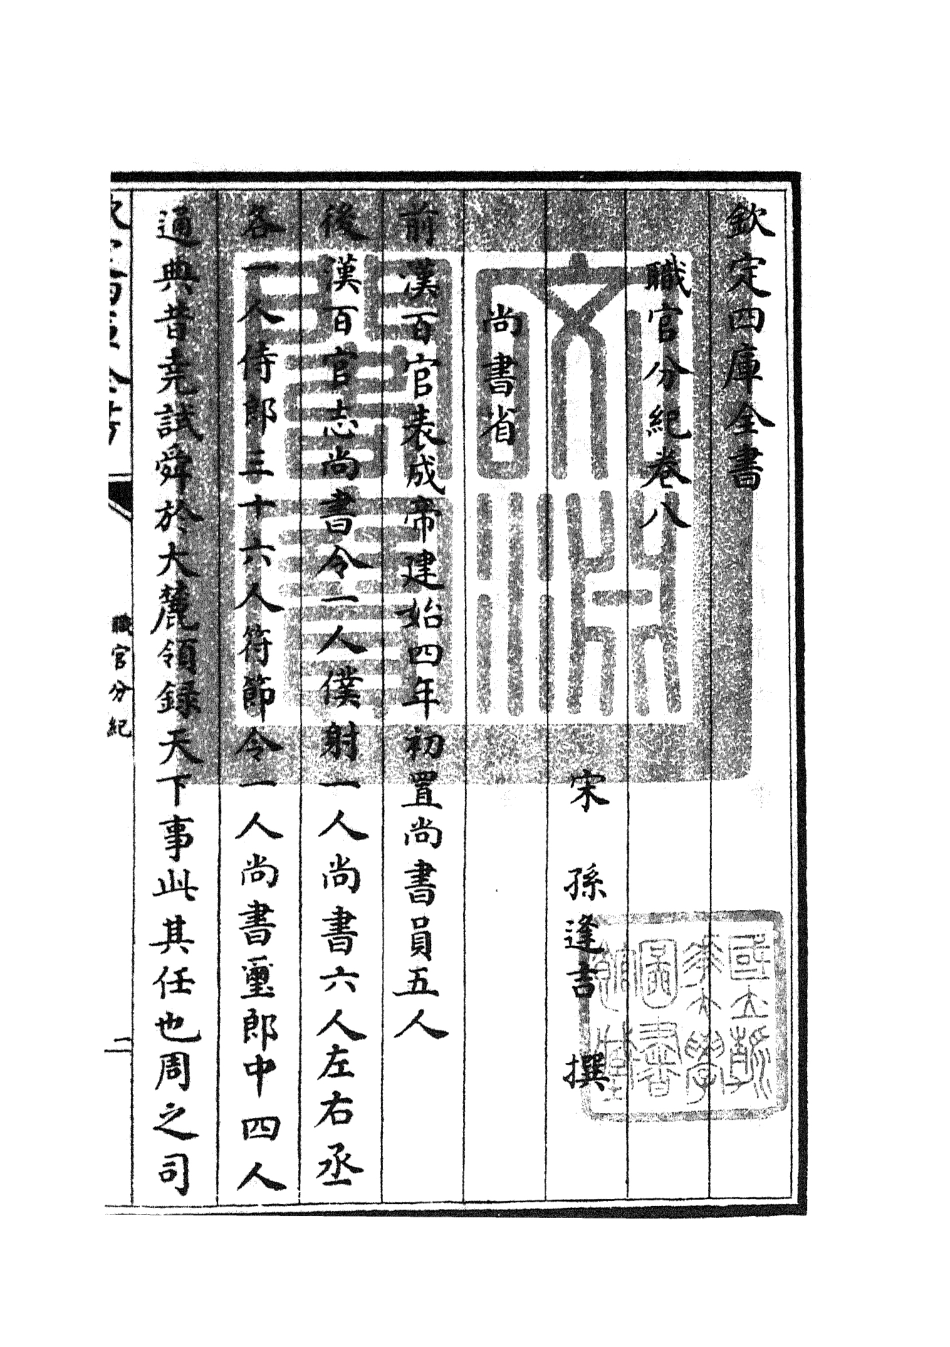 欽定四庫全書
職官分紀卷八
宋 孫逢吉 撰
尚書省
前漢百官表成帝建始四年初置尚書員五人
後漢百官志尚書令一人僕射一人尚書六人左右丞
各一人侍郎三十六人符節令一人尚書璽郎中四人
通典昔堯試舜於大麓領録天下事此其任也周之司
職官分紀
二
文淵閣寶
國立浙江大學圖書館藏